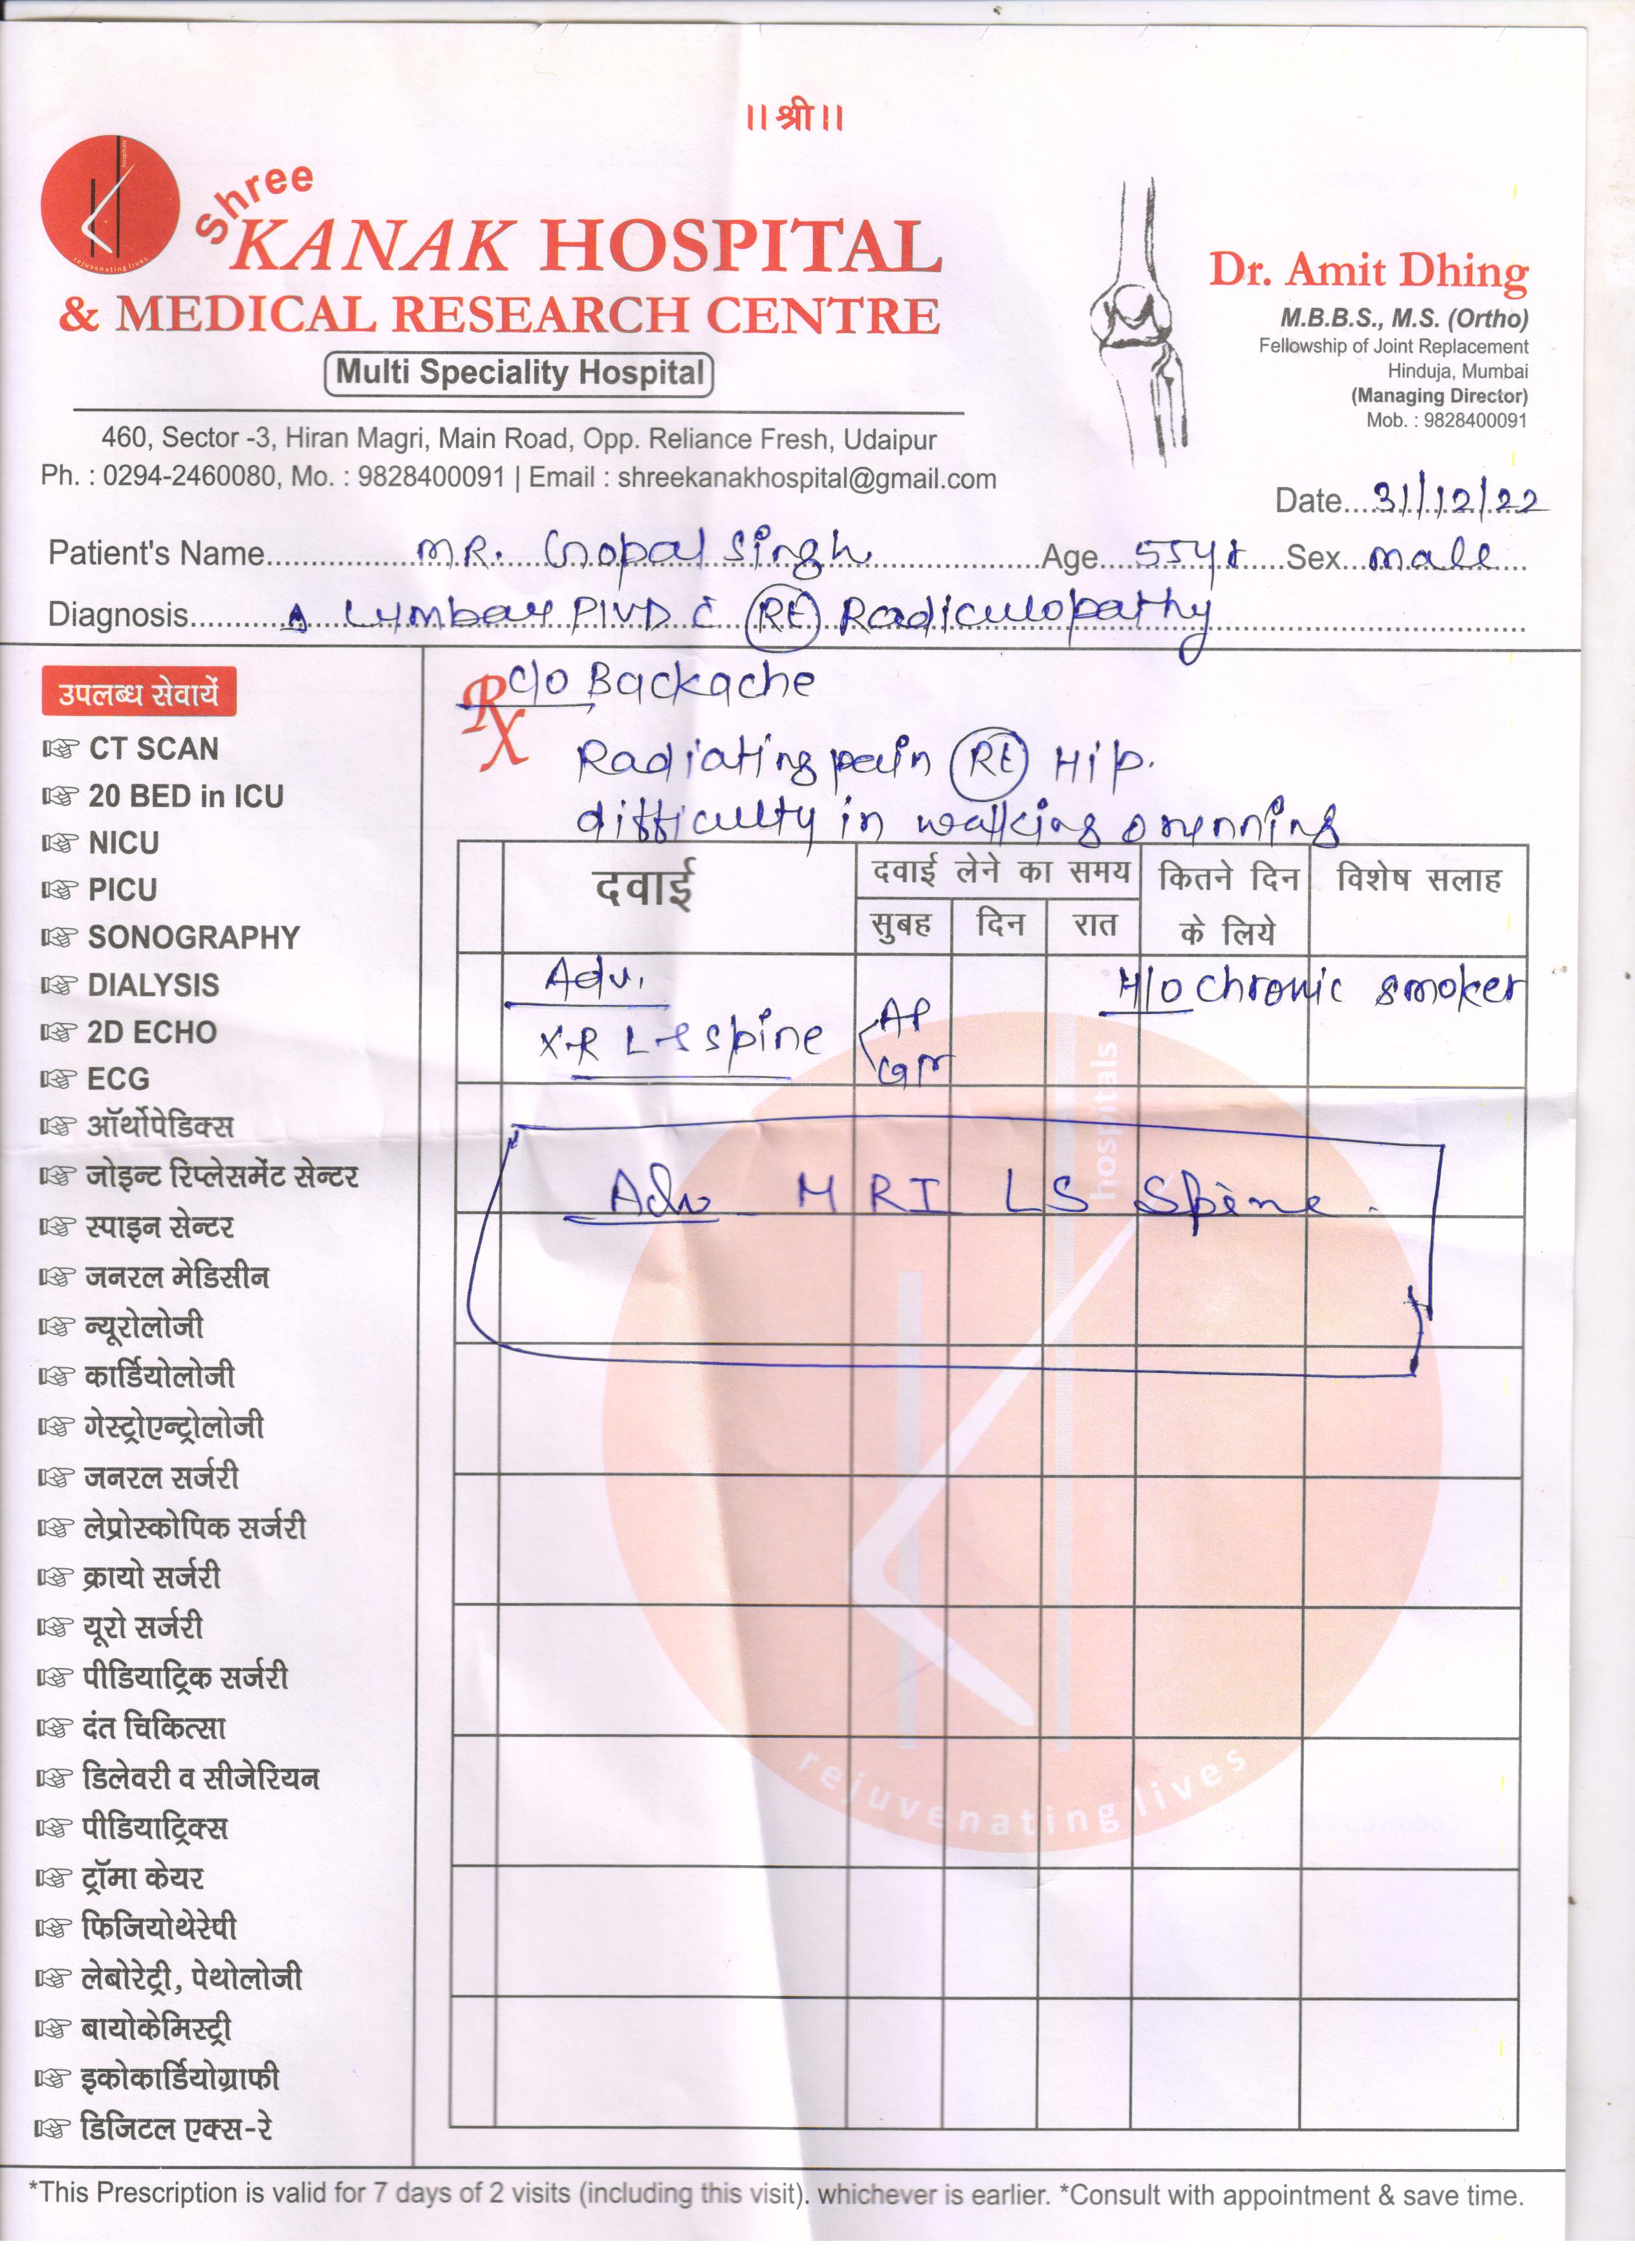 ॥ श्री ॥
hospitals
rejuvenating lives
Shree
KANAK HOSPITAL
& MEDICAL RESEARCH CENTRE
Multi Speciality Hospital
460, Sector -3, Hiran Magri, Main Road, Opp. Reliance Fresh, Udaipur
Ph. : 0294-2460080, Mo. : 9828400091 | Email : shreekanakhospital@gmail.com
Dr. Amit Dhing
M.B.B.S., M.S. (Ortho)
Fellowship of Joint Replacement
Hinduja, Mumbai
(Managing Director)
Mob. : 9828400091
Date....31/12/22
Patient's Name.......MR. Gopal Singh.......Age....55yr....Sex...male...
Diagnosis.......Δ Lumbar PIVD c̄ (RE) Radiculopathy.......
उपलब्ध सेवायें
CT SCAN
20 BED in ICU
NICU
PICU
SONOGRAPHY
DIALYSIS
2D ECHO
ECG
ऑर्थोपेडिक्स
जोइन्ट रिप्लेसमेंट सेन्टर
स्पाइन सेन्टर
जनरल मेडिसीन
न्यूरोलोजी
कार्डियोलोजी
गेस्ट्रोएन्ट्रोलोजी
जनरल सर्जरी
लेप्रोस्कोपिक सर्जरी
क्रायो सर्जरी
यूरो सर्जरी
पीडियाट्रिक सर्जरी
दंत चिकित्सा
डिलेवरी व सीजेरियन
पीडियाट्रिक्स
ट्रॉमा केयर
फिजियोथेरेपी
लेबोरेट्री, पेथोलोजी
बायोकेमिस्ट्री
इकोकार्डियोग्राफी
डिजिटल एक्स-रे
Rx
c/o Backache
Radiating pain (RE) Hip.
difficulty in walking running
दवाई
दवाई लेने का समय
सुबह दिन रात
कितने दिन के लिये
विशेष सलाह
Adv.
H/o chronic smoker
X-R L-S spine AP
Adv - MRI LS Spine.
hospitals
rejuvenating lives
*This Prescription is valid for 7 days of 2 visits (including this visit). whichever is earlier. *Consult with appointment & save time.